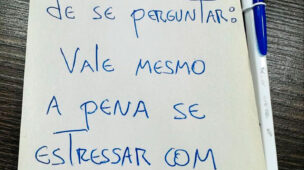 DE SE PERGUNTAR:
VALE MESMO
A PENA SE
ESTRESSAR COM